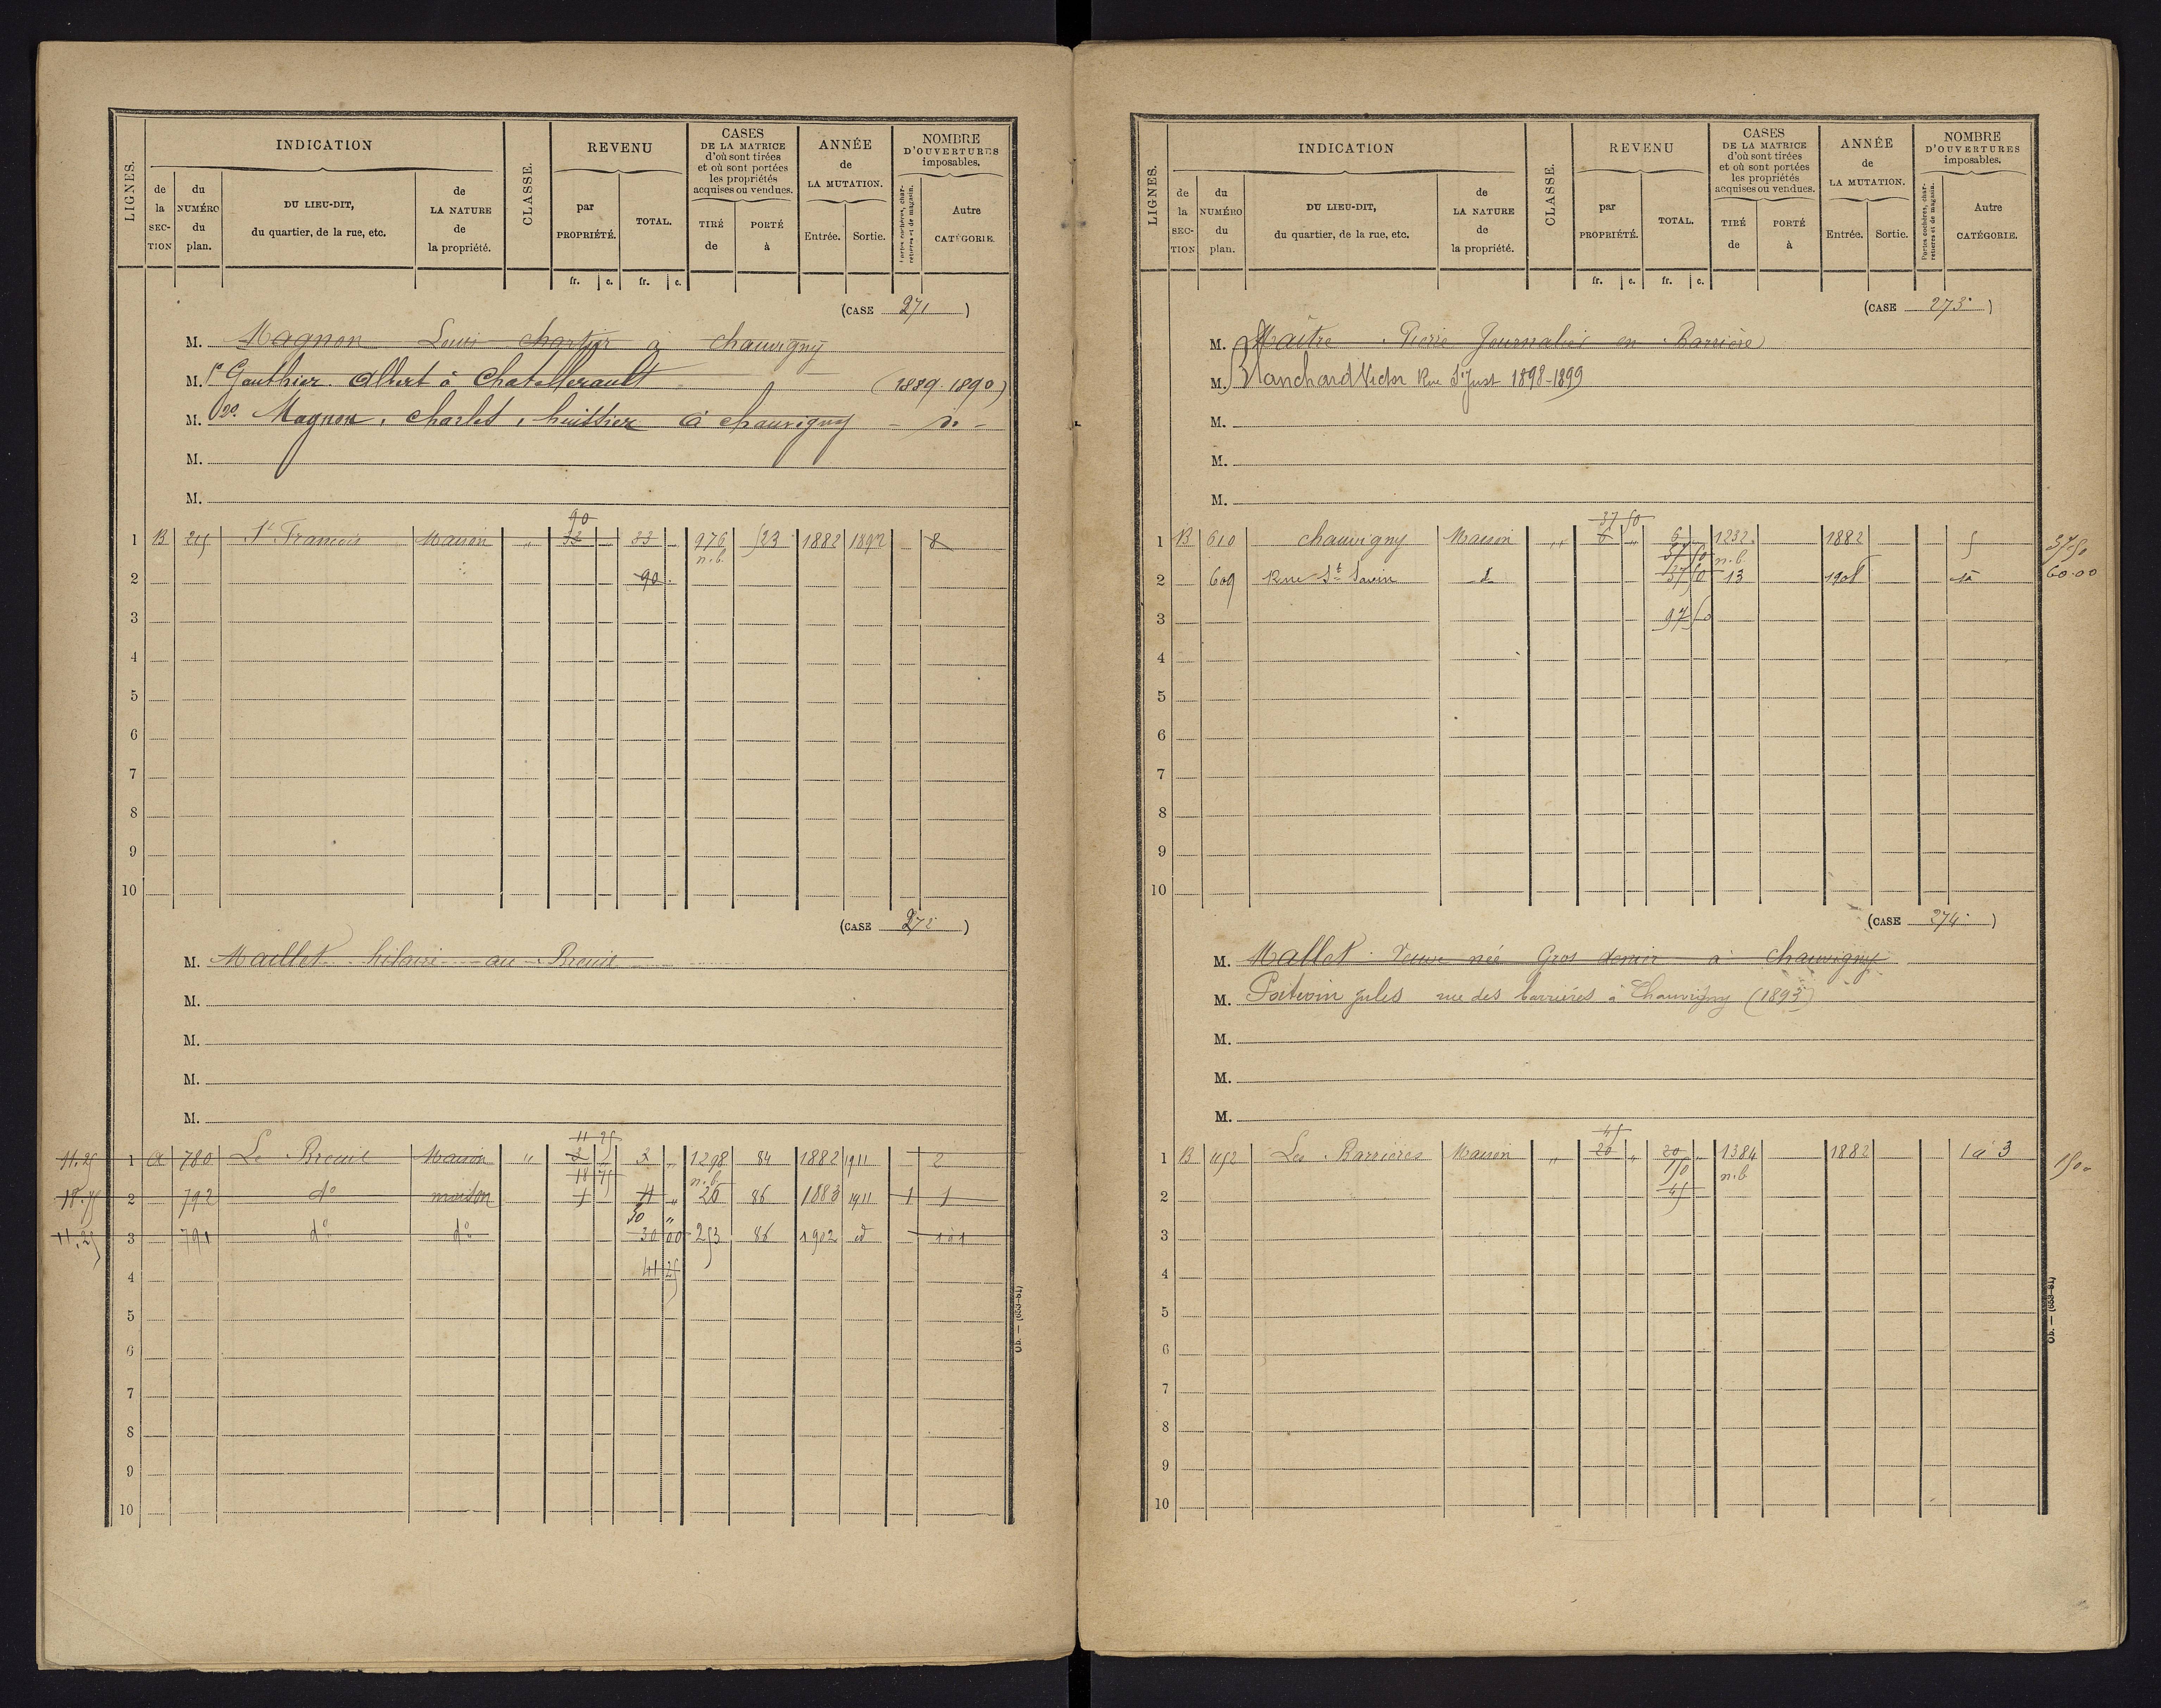 LIGNES.
INDICATION
de la SECTION
du NUMÉRO du plan.
DU LIEU-DIT, du quartier, de la rue, etc.
de LA NATURE de la propriété.
CLASSE.
REVENU
par PROPRIÉTÉ.
TOTAL.
CASES DE LA MATRICE d'où sont tirées et où sont portées les propriétés acquises ou vendues.
TIRÉ de
PORTÉ à
ANNÉE de LA MUTATION.
Entrée.
Sortie.
NOMBRE D'OUVERTURES imposables.
Portes cochères, charretières et de magasin.
Autre CATÉGORIE.
fr. c. fr. c.
(CASE 271)
M. Magnon Louis à chauvigny
M. 1º Gauthier Albert à Chatellerault (1889-1890)
M. 2º Magnon, Charles, huissier à chauvigny - dº -
M.
M.
90
1 B Sᵗ François Maison " 976 523 1882 1892 8
n.b.
2 90
3
4
5
6
7
8
9
10
(CASE 272)
M. Maillet hilaire au Breuil
M.
M.
M.
M.
11 25
11.25 1 A 780 Le Breuil Maison " 3 " 1298 84 1882 1911 2
18 75 n.b.
18.75 2 792 dº maison 1 " 26 86 1883 1911 1 1
30 "
11.25 3 791 dº dº 30 00 253 86 1902 id 1à1
4 41 25
5
6
7
8
9
10
Ob. — (653-81)
LIGNES.
INDICATION
de la SECTION
du NUMÉRO du plan.
DU LIEU-DIT, du quartier, de la rue, etc.
de LA NATURE de la propriété.
CLASSE.
REVENU
par PROPRIÉTÉ.
TOTAL.
CASES DE LA MATRICE d'où sont tirées et où sont portées les propriétés acquises ou vendues.
TIRÉ de
PORTÉ à
ANNÉE de LA MUTATION.
Entrée.
Sortie.
NOMBRE D'OUVERTURES imposables.
Portes cochères, charretières et de magasin.
Autre CATÉGORIE.
fr. c. fr. c.
(CASE 273)
M. Maitre Pierre Journalier en Barrière
M. Blanchard Victor Rue Sᵗ Just 1898-1899
M.
M.
M.
37 50
1 B 610 chauvigny Maison " 6 " 6 1232 1882 5 37 50
37 50 n.b.
2 609 Rue Sᵗ Savin d 37 50 13 60.00
3 97 50
4
5
6
7
8
9
10
(CASE 274)
M. Mallet Veuve née Gros denier à chauvigny
M. Poitevin Jules rue des barrières à Chauvigny (1893)
M.
M.
M.
45
1 B 1152 Les Barrières Maison " 20 " 20 " 1384 1882 1 à 3
n.b
2 45
3
4
5
6
7
8
9
10
Ob. — (653-81)